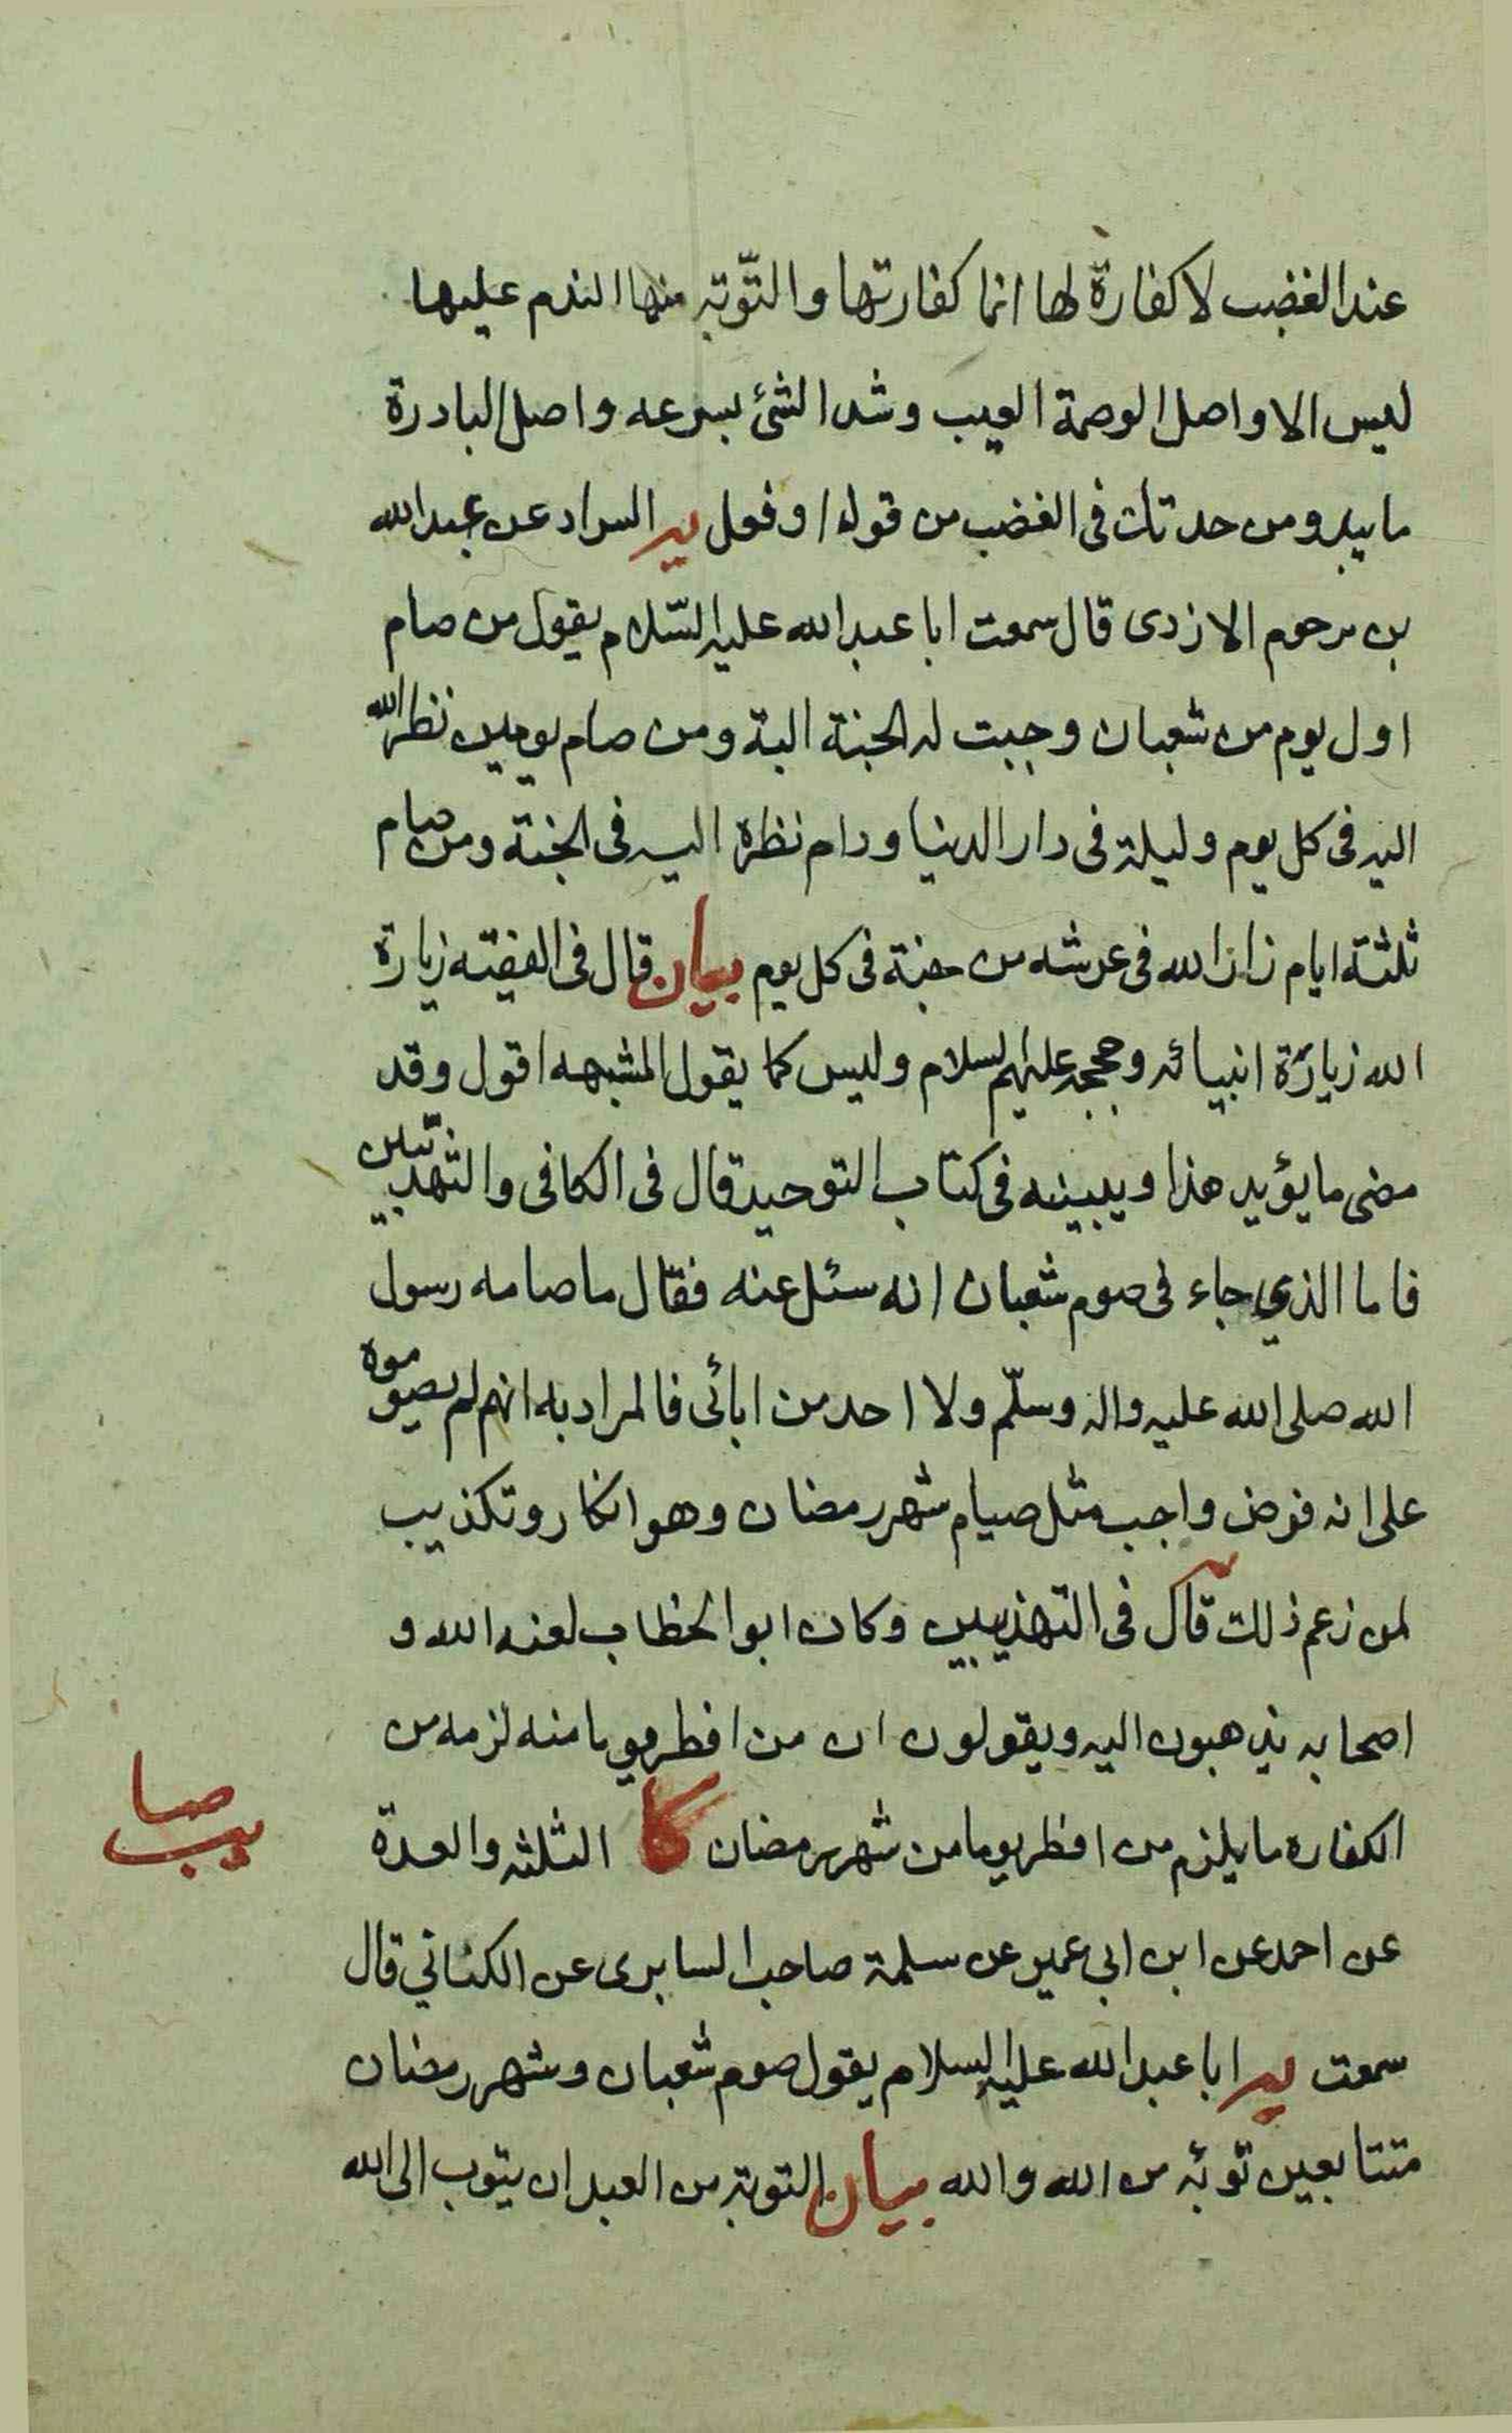 عند الغضب لا كفارة لها انما كفارتها والتّوبة منها الندم عليها
ليس الا واصل الوصمة العيب وشد الشئ بسرعه واصل البادرة
ما يبدو من حدتك فى الغضب من قول او فعل يه السراد عن عبد الله
بن مرحوم الازدى قال سمعت ابا عبد الله عليه السّلام يقول من صام
اول يوم من شعبان وجبت له الجنة البة ومن صام يومين نظر الله
اليه فى كل يوم وليلة فى دار الدنيا ودام نظره اليه فى الجنة ومن صام
ثلثة ايام زار الله فى عرشه من جنة فى كل يوم بيان قال فى الفقيه زيارة
الله زيارة انبيائه وحججه عليهم السلام وليس كما يقول المشبهه اقول وقد
مضى ما يؤيد هذا ويبينه فى كتاب التوحيد قال فى الكافى والتهذيبين
فاما الذي جاء فى صوم شعبان انه سئل عنه فقال ما صامه رسول
الله صلى الله عليه واله وسلّم ولا احد من ابائى فالمراد به انهم لم يصوموه
على انه فرض واجب مثل صيام شهر رمضان وهو انكار وتكذيب
لمن زعم ذلك قال فى التهذيبين وكان ابو الخطاب لعنه الله و
اصحابه يذهبون اليه ويقولون ان من افطر يوما منه لزمه من
الكفاره ما يلزم من افطر يوما من شهر رمضان كا الثلثه والعدة
عن احمد عن ابن ابى عمير عن سلمة صاحب السابرى عن الكنانى قال
سمعت يه ابا عبد الله عليه السلام يقول صوم شعبان وشهر رمضان
متتابعين توبة من الله والله بيان التوبة من العبد ان يتوب الى الله
صا
يب